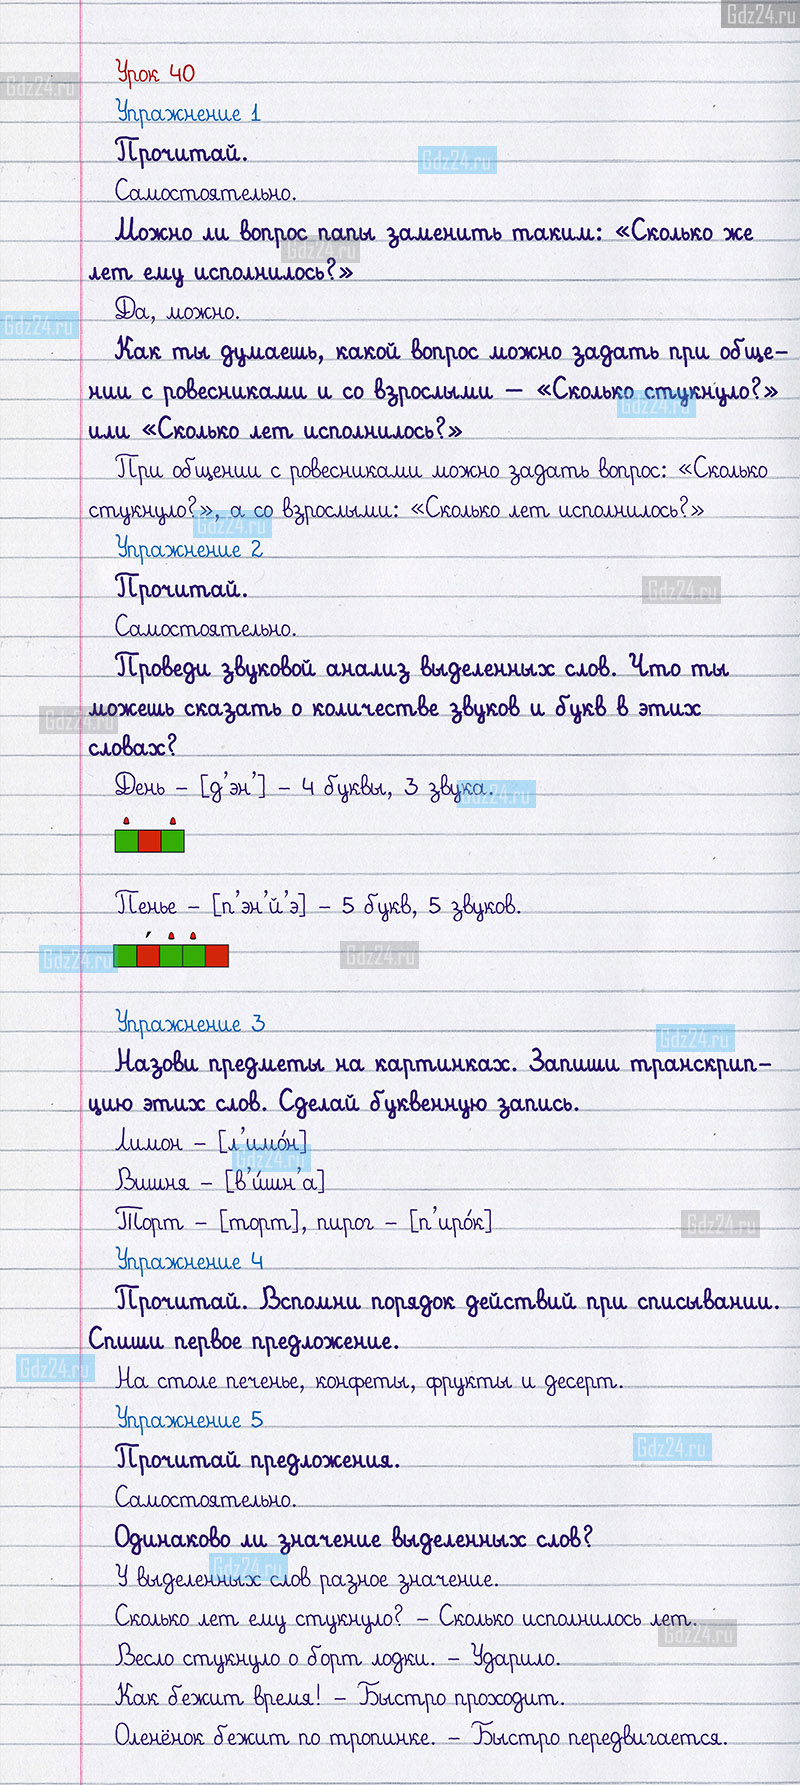 Gdz24.ru
Урок 40
Gdz24.ru
Упражнение 1
Прочитай.
Gdz24.ru
Самостоятельно.
Можно ли вопрос папы заменить таким: «Сколько же
Gdz24.ru
лет ему исполнилось?»
Да, можно.
Gdz24.ru
Как ты думаешь, какой вопрос можно задать при обще-
нии с ровесниками и со взрослыми – «Сколько стукнуло?»
Gdz24.ru
или «Сколько лет исполнилось?»
При общении с ровесниками можно задать вопрос: «Сколько
стукнуло?», а со взрослыми: «Сколько лет исполнилось?»
Gdz24.ru
Упражнение 2
Прочитай.
Gdz24.ru
Самостоятельно.
Проведи звуковой анализ выделенных слов. Что ты
можешь сказать о количестве звуков и букв в этих
Gdz24.ru
словах?
День – [д’эн’] – 4 буквы, 3 звука.
Gdz24.ru
Пенье – [п’эн’й’э] – 5 букв, 5 звуков.
Gdz24.ru
Gdz24.ru
Упражнение 3
Gdz24.ru
Назови предметы на картинках. Запиши транскрип-
цию этих слов. Сделай буквенную запись.
Лимон – [л’имо́н]
Gdz24.ru
Вишня – [в’и́шн’а]
Торт – [торт], пирог – [п’иро́к]
Gdz24.ru
Упражнение 4
Прочитай. Вспомни порядок действий при списывании.
Спиши первое предложение.
Gdz24.ru
На столе печенье, конфеты, фрукты и десерт.
Упражнение 5
Gdz24.ru
Прочитай предложения.
Самостоятельно.
Одинаково ли значение выделенных слов?
Gdz24.ru
У выделенных слов разное значение.
Сколько лет ему стукнуло? – Сколько исполнилось лет.
Gdz24.ru
Весло стукнуло о борт лодки. – Ударило.
Как бежит время! – Быстро проходит.
Оленёнок бежит по тропинке. – Быстро передвигается.